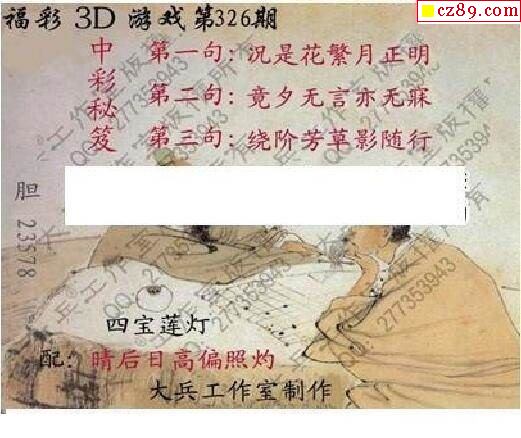 cz89.com
福彩3D游戏第326期
中彩秘笈
第一句：况是花繁月正明
第二句：竟夕无言亦无寐
第三句：绕阶芳草影随行
胆 23578
四宝莲灯
配：晴后日高偏照灼
大兵工作室制作
大兵工作室版權所有
QQ:277353943